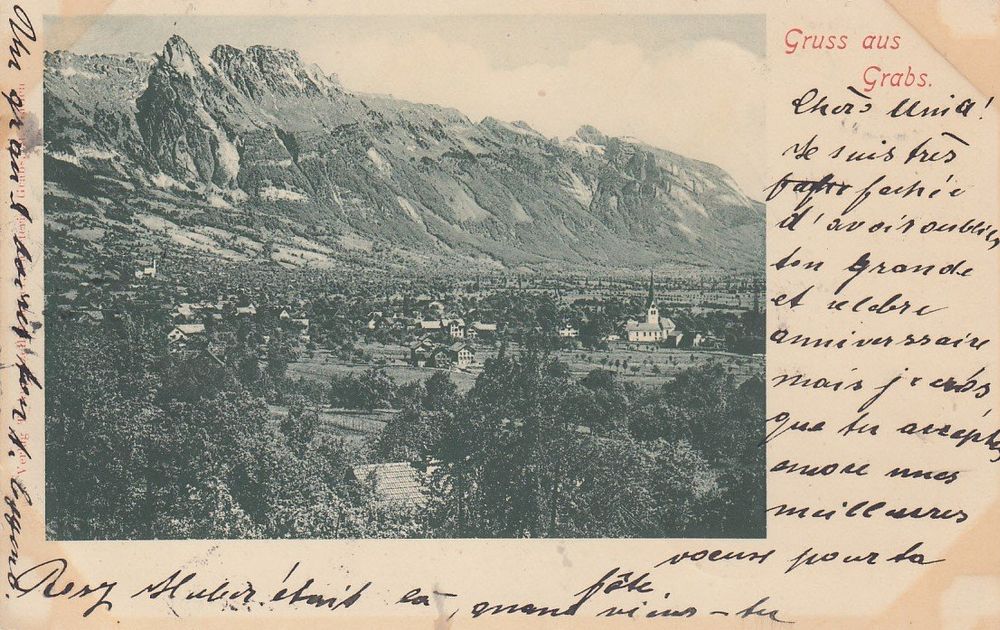 Gruss aus
Grabs.
Chère Unia!
Je suis très
fachée
d'avoir oublié
ton grande
et célèbre
anniverssaire
mais je crois
que tu accéptes
encore mes
meilleures
voeux pour ta
fête
Resy Huber était là, quand viens-tu
Un grand baiser pour t.